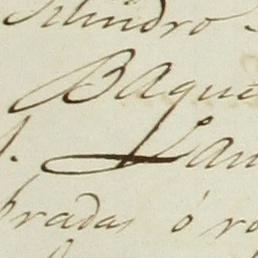 Silindro
BAque
. Lan
bradas ó ro